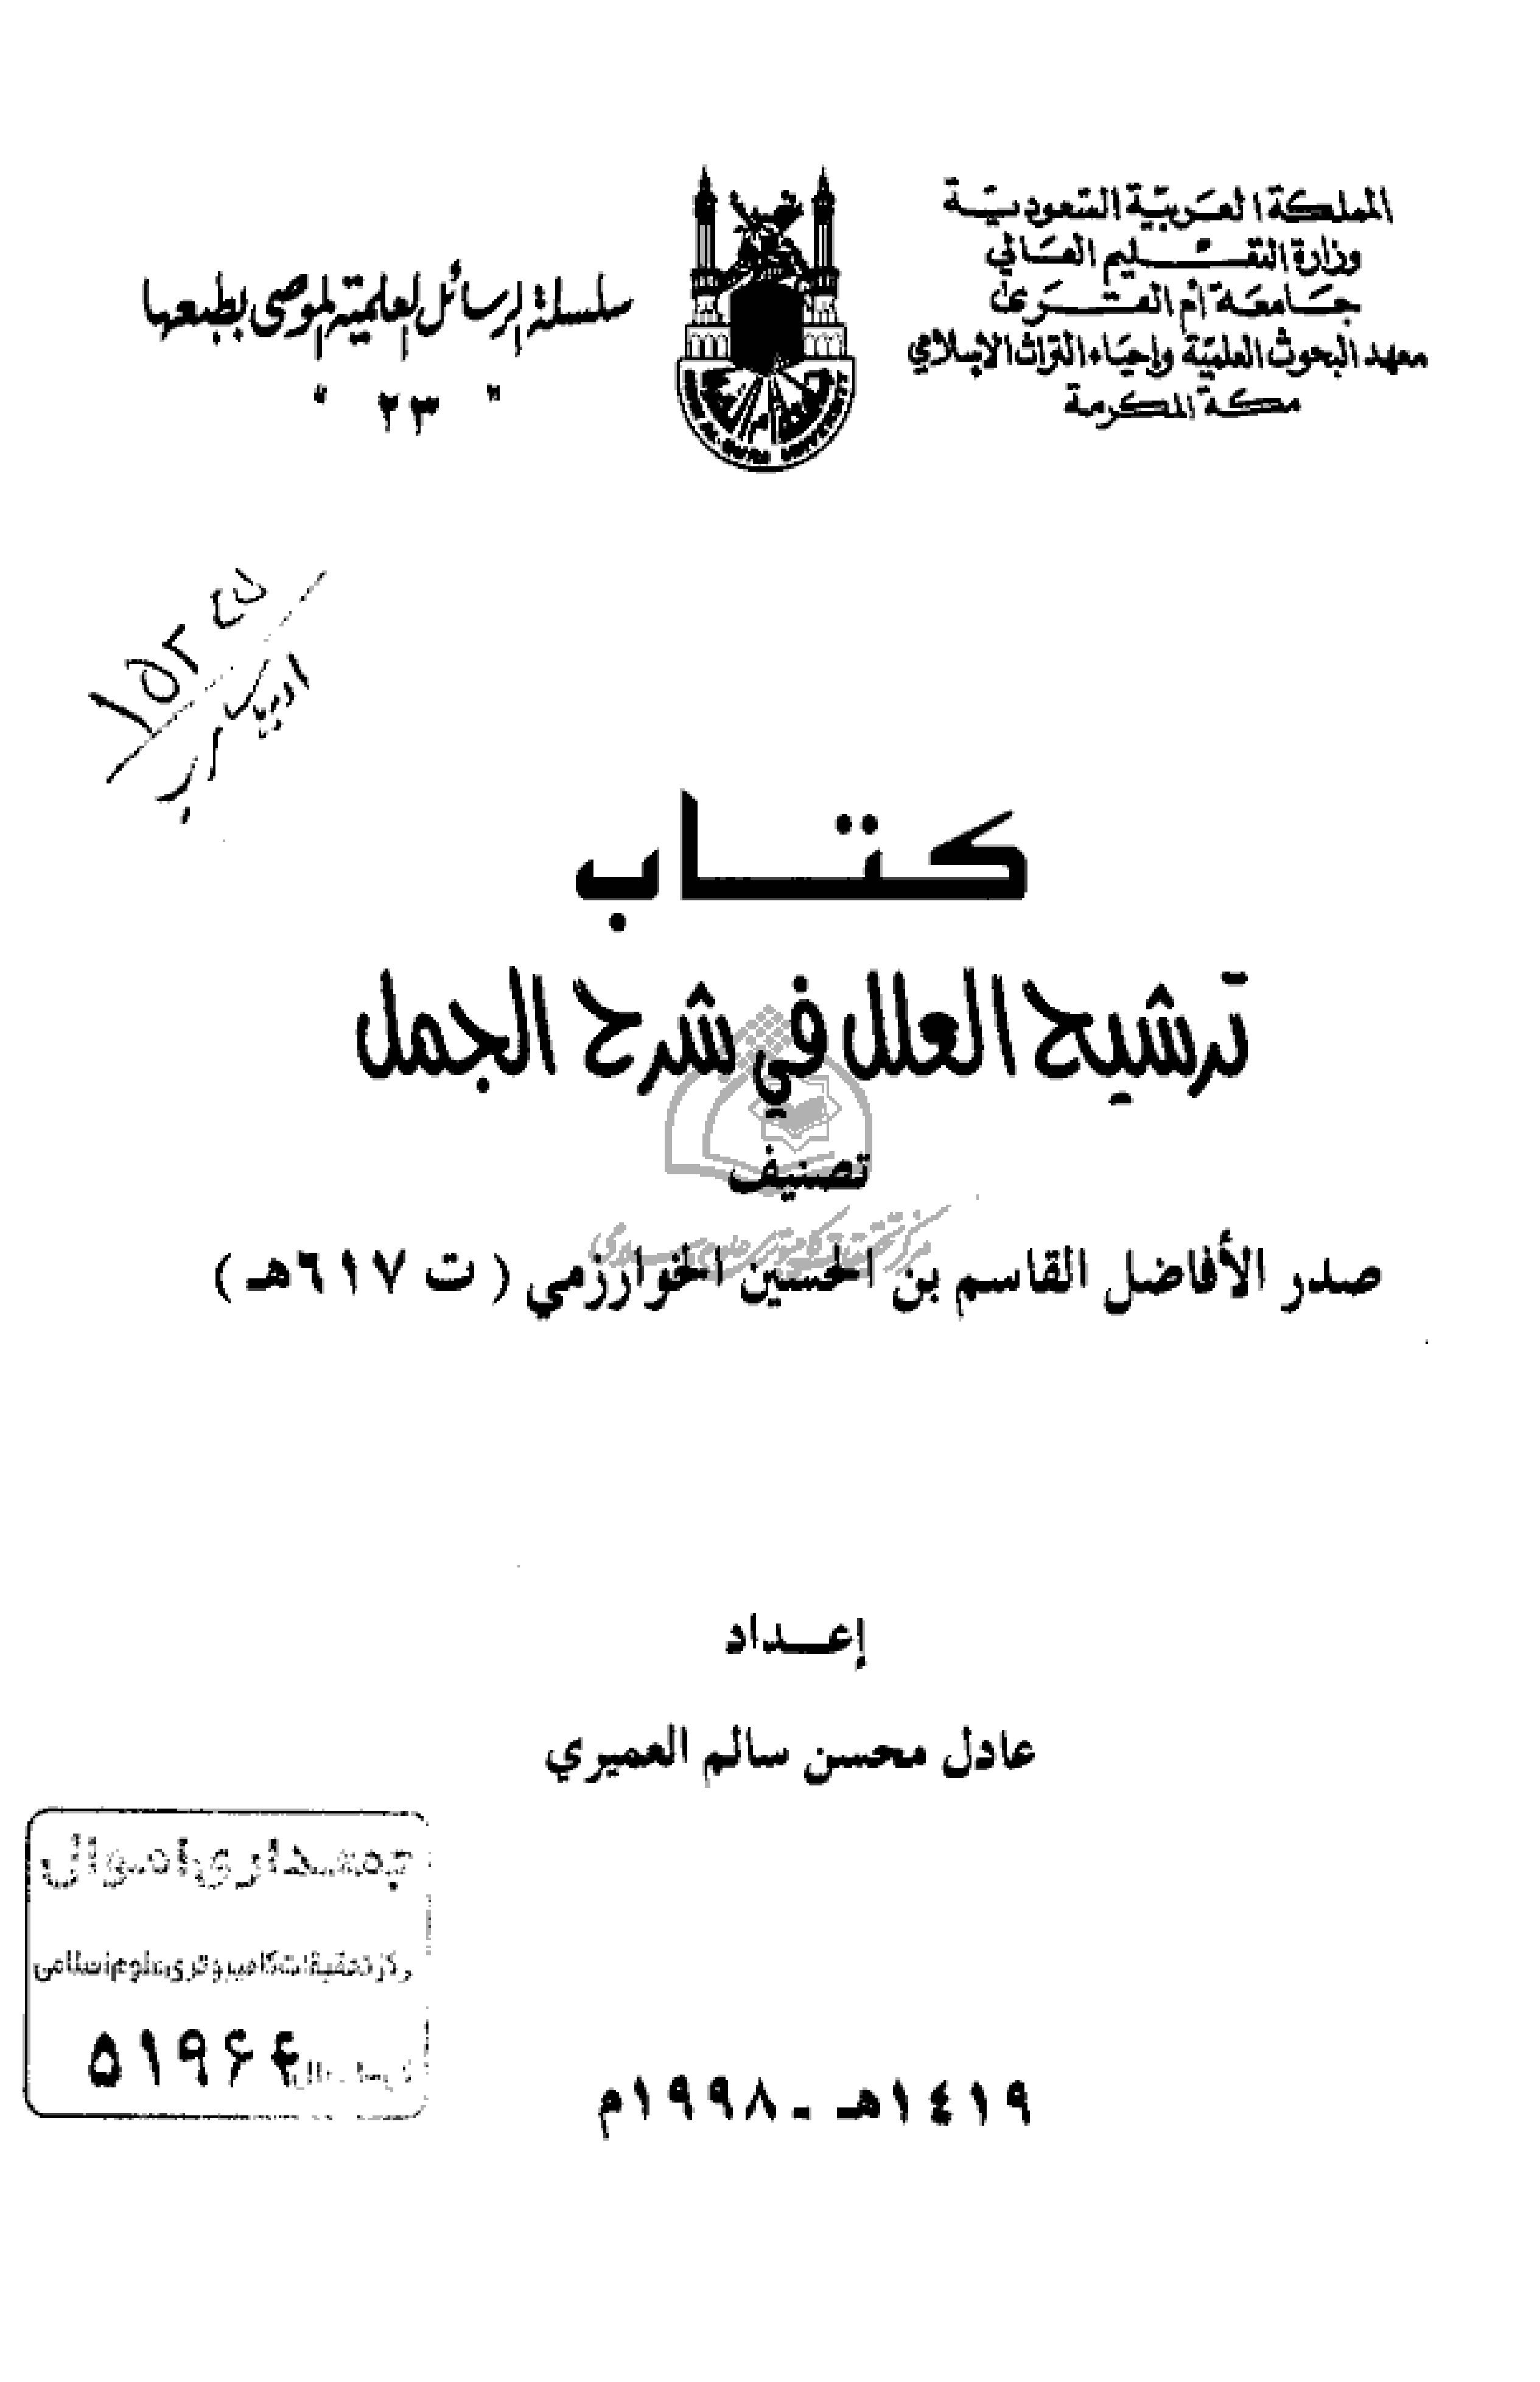 المملكة العربية السعودية
وزارة التعليم العالي
جامعة أم القرى
معهد البحوث العلمية وإحياء التراث الإسلامي
مكة المكرمة
سلسلة الرسائل العلمية الموصى بطبعها
" ٢٣ "
كتاب
ترشيح العلل في شرح الجمل
تصنيف
صدر الأفاضل القاسم بن الحسين الخوارزمي ( ت ٦١٧هـ )
إعداد
عادل محسن سالم العميري
اموال
مركز تحقیقات کامپیوتری علوم اسلامی
۵۱۹۶۴
١٤١٩هـ - ١٩٩٨م